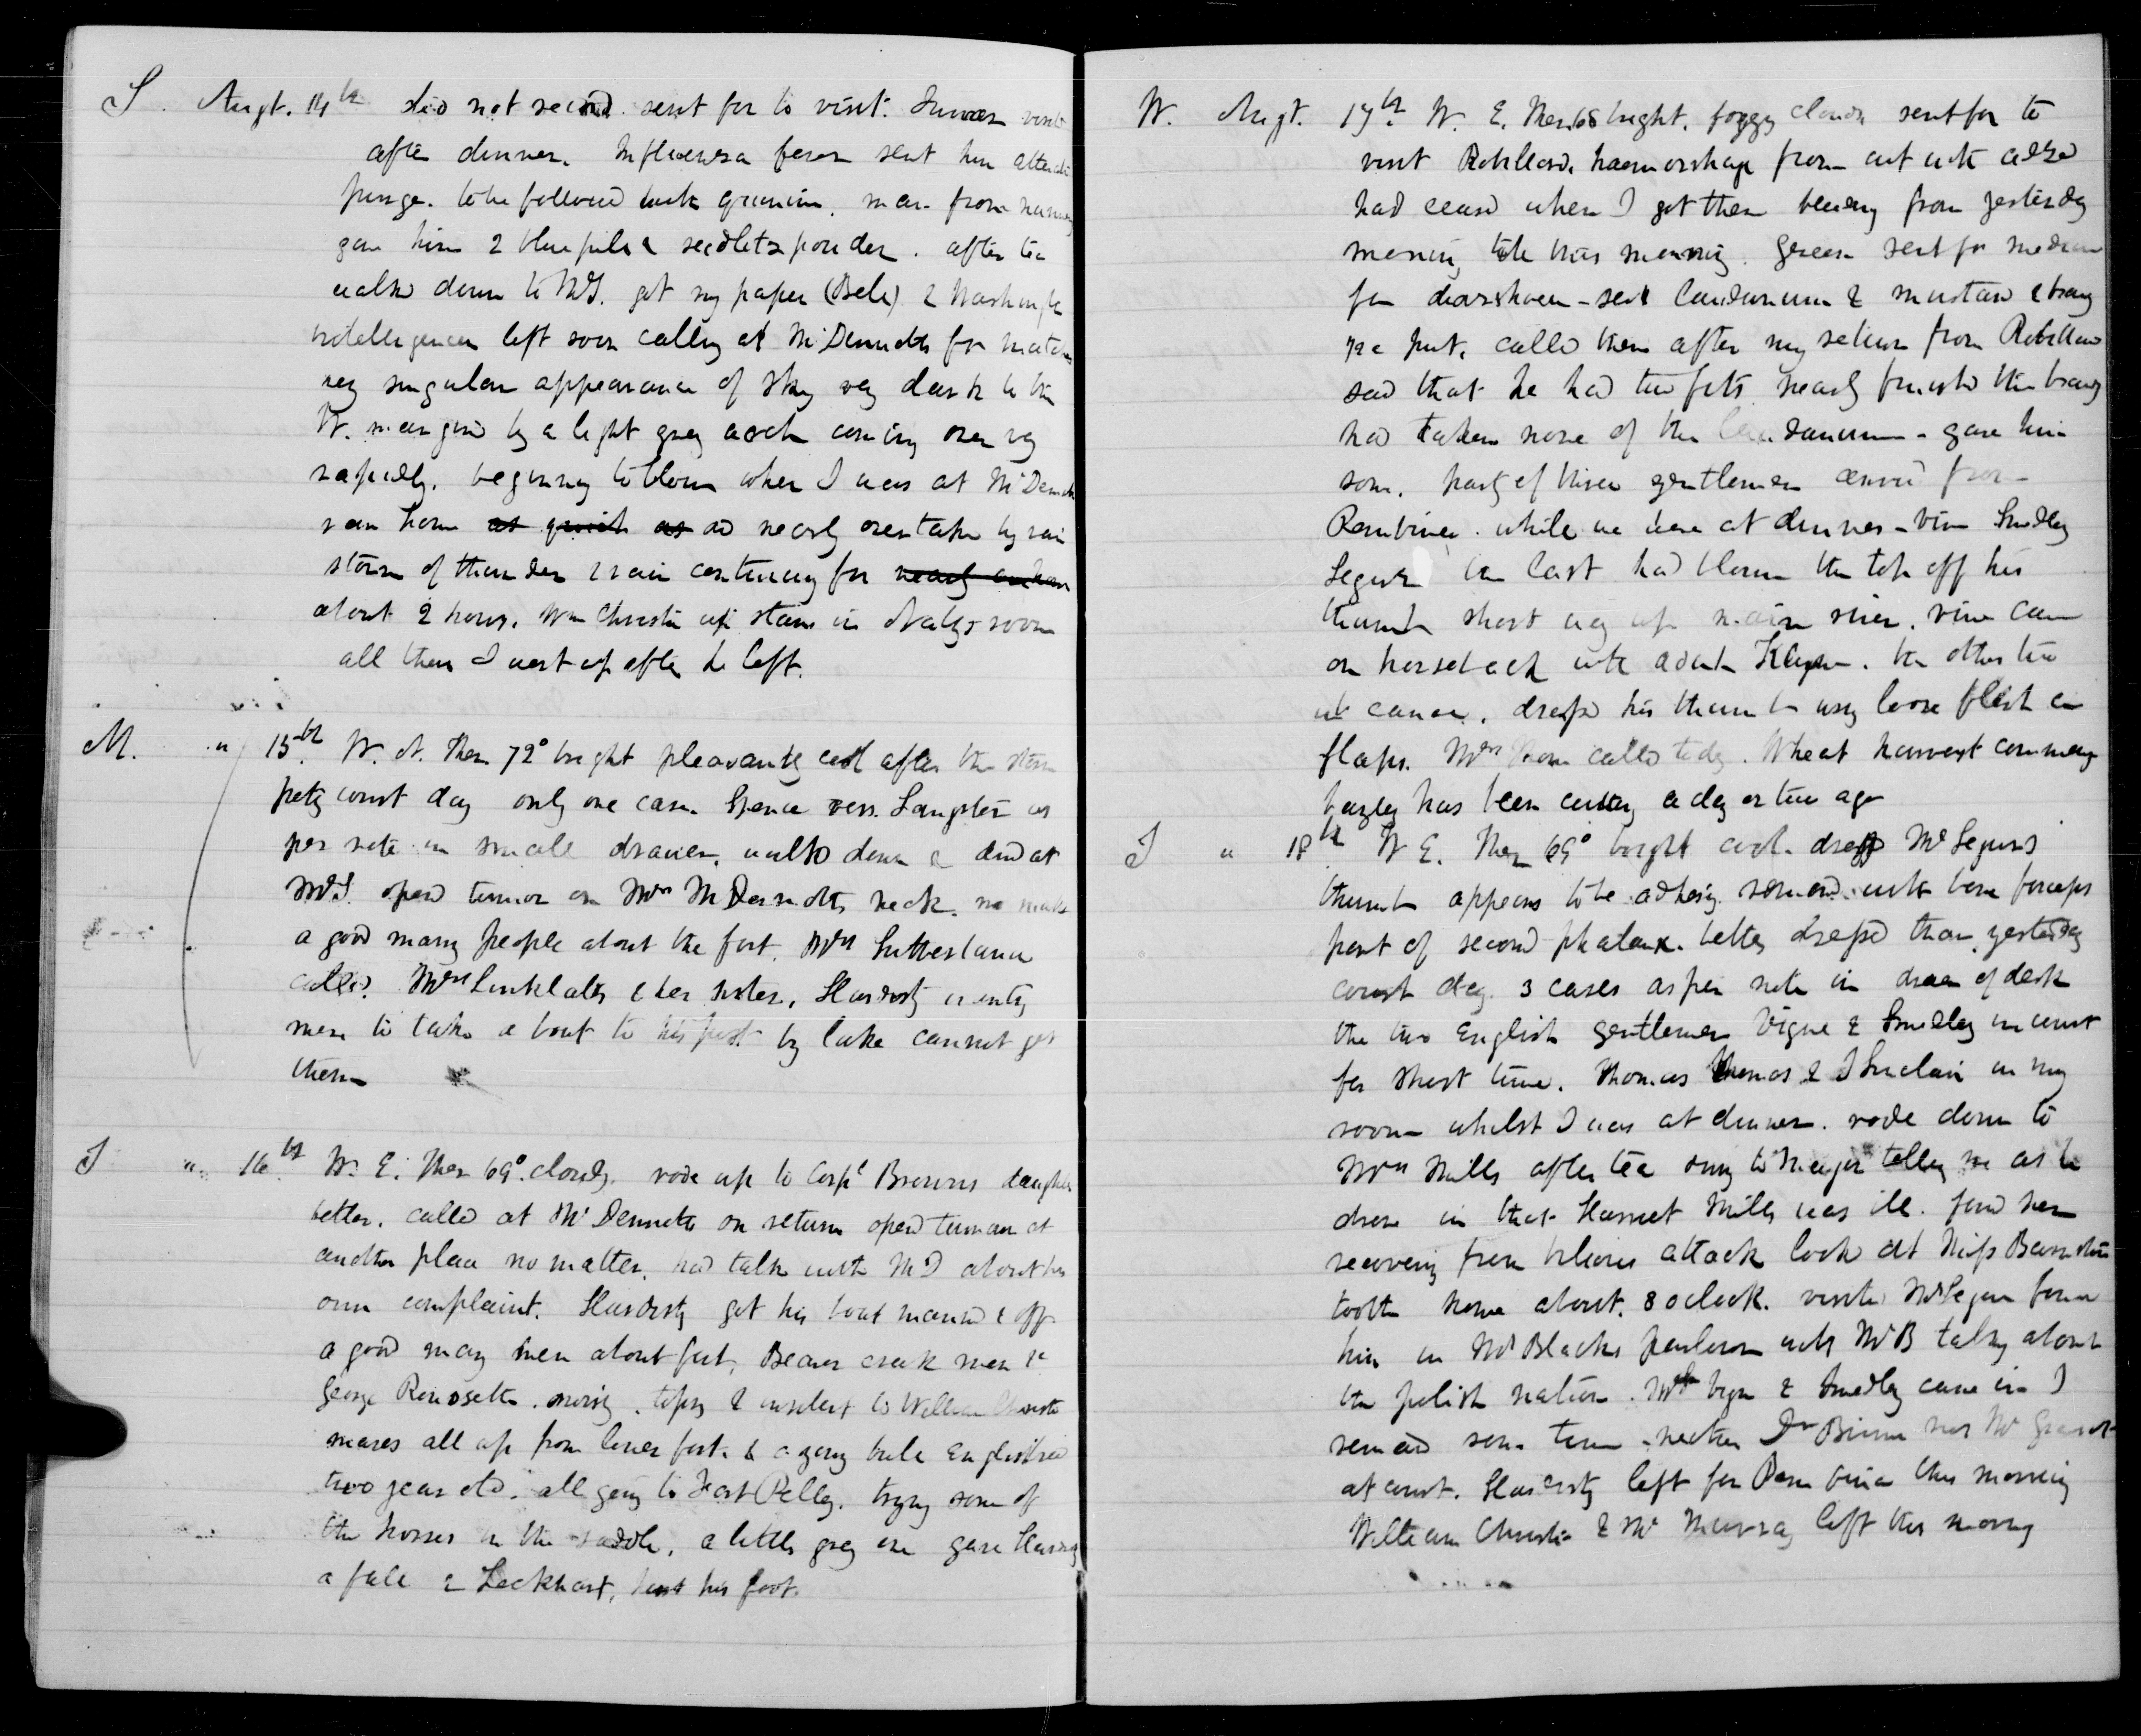 S. Augt. 14th did not record. sent for to visit. Inman visit
after dinner. Influenza fever sent him
purge. to be followed with quinine. man from
gave him 2 blue pills & seidletz powder. after tea
walked down to McD. got my paper (Bell) & Washington
intelligencer left soon calling at McDermotts for matches
very singular appearance of sky very dark to the
W. margined by a light grey arch coming over very
rapidly. beginning to blow when I was at McDermotts
ran home as quick as and nearly overtaken by rain
storm of thunder & rain continuing for nearly an hour
about 2 hours. Wm Christie up stairs in room
all there I went up after he left.
M. " 15th W. N. Ther 72° bright pleasantly cool after the storm
petty court day only one case. Spence vers. Sangster as
per note in small drawer. walked down & dind at
McD. opend tumor on Mrs McDermotts neck. no matter
a good many people about the fort. Mrs Sutherland
called. Mrs Linklater & her sister. Hardisty wanting
men to take a boat to his post by lake cannot get
them
T " 16th W. E. Ther 69°. cloudy. rode up to Corpl Browns daughter
better. called at McDermotts on return opend tumour at
another place no matter. had talk with McD about his
own complaint. Hardisty got his boat manned & off
a good many men about fort. Beaver creek men &c
George Rousselle. noisy. tipsy & insolent to William Christie
mares all up from lower fort. & a young bull English bred
two year old. all going to Fort Pelly. trying some of
the horses in the saddle. a little grey one gave Hardisty
a fall & Lockhart, hurt his foot.
W. Augt. 17th W. E. Ther 68 bright. foggy clouds sent for to
visit Robillard. haemorrhage from cut with adze
had ceased when I got there bleeding from yesterday
morning till this morning. Green sent for medicine
for diarrhoea - sent laudanum & mustard & brandy
1/2 a pint. called there after my return from Robillard
said that he had two fits nearly finished the brandy
had taken none of the laudanum - gave him
some. party of three gentlemen arrivd from
Pembina. while we were at dinner - Smedley
Seguin the last had blown the top off his
thumb short way up main river. came
on horseback with Adam Klyne. the other two
in canoe. dressed his thumb using loose flesh as
flaps. Mrs Thom called today. Wheat harvest commencing
barley has been cutting a day or two ago
T " 18th W E. Ther 69° bright cool. dressd Mr Seguins
thumb appears to be adhering. removed with bone forceps
part of second phalanx. better dressed than yesterday
court day. 3 cases as per note in drawer of desk
the two English gentlemen Vigne & Smedley in court
for short time. Thomas Thomas & J Sinclair in my
room whilst I was at dinner. rode down to
Mrs Mills after tea owing to Major telling me as he
drove in that Harriet Mills was ill. found her
recovering from bilious attack lookd at Miss
tooth home about. 8 oclock. visited Mr Seguin found
him in Mr Blacks with Mr B talking about
the polish nation. Mr Vigne & Smedley came in I
remaind some time. neither Dr Bunn nor Mr Grant
at court. Hardisty left for Pembina this morning
William Christie & Mr Murray left this morning